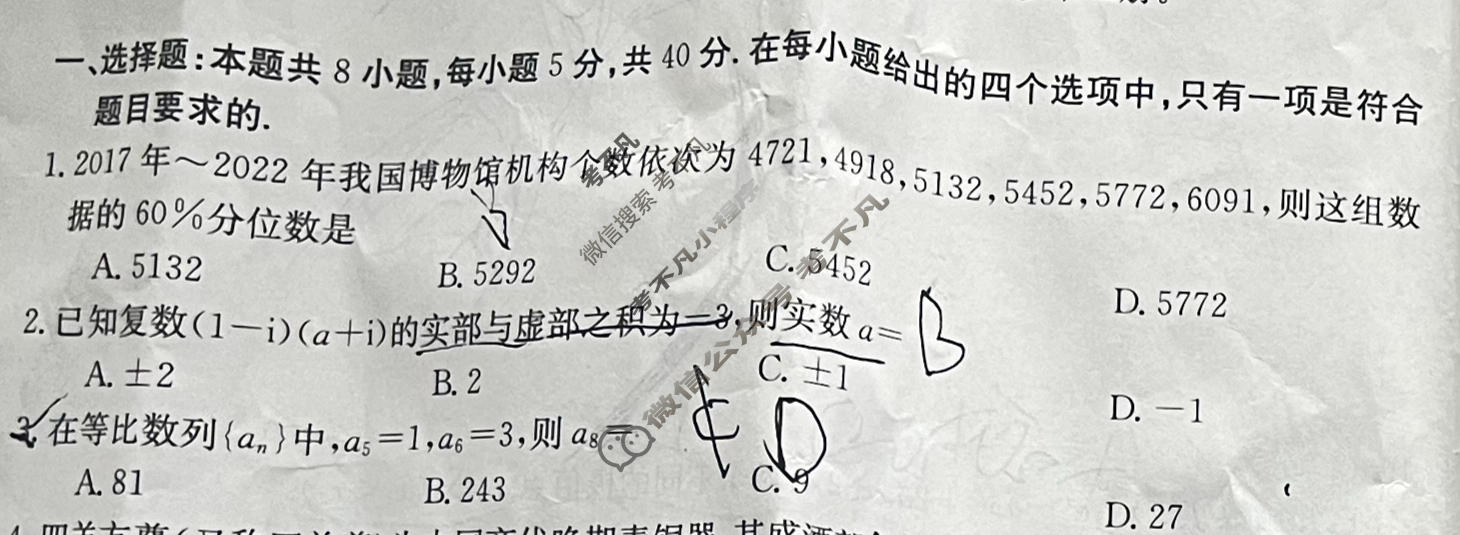 一、选择题:本题共 8 小题,每小题 5 分,共 40 分.在每小题给出的四个选项中,只有一项是符合
题目要求的.
1. 2017 年～2022 年我国博物馆机构个数依次为 4721,4918,5132,5452,5772,6091,则这组数
据的 60%分位数是
A. 5132 B. 5292 C. 5452 D. 5772
2. 已知复数(1-i)(a+i)的实部与虚部之积为-3,则实数 a= B
A. ±2 B. 2 C. ±1 D. -1
3. 在等比数列{aₙ}中,a₅=1,a₆=3,则 a₈= D
A. 81 B. 243 C. 9 D. 27
考不凡
微信搜索 考不凡
考不凡小程序
微信公众号 考不凡